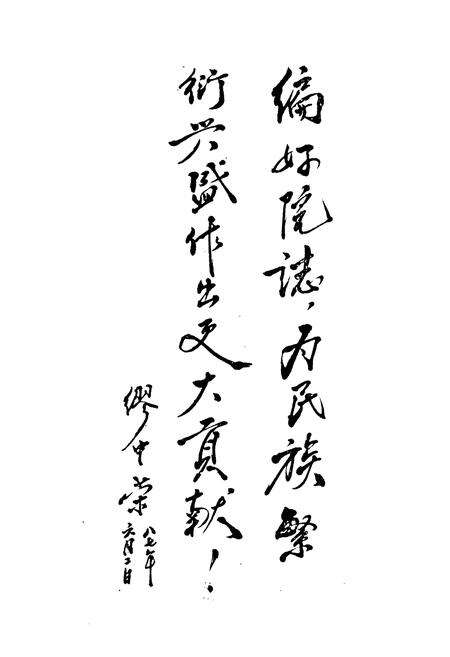 编好院誌，为民族繁
衍兴盛作出更大贡献！
缪中荣
八七年
六月二日